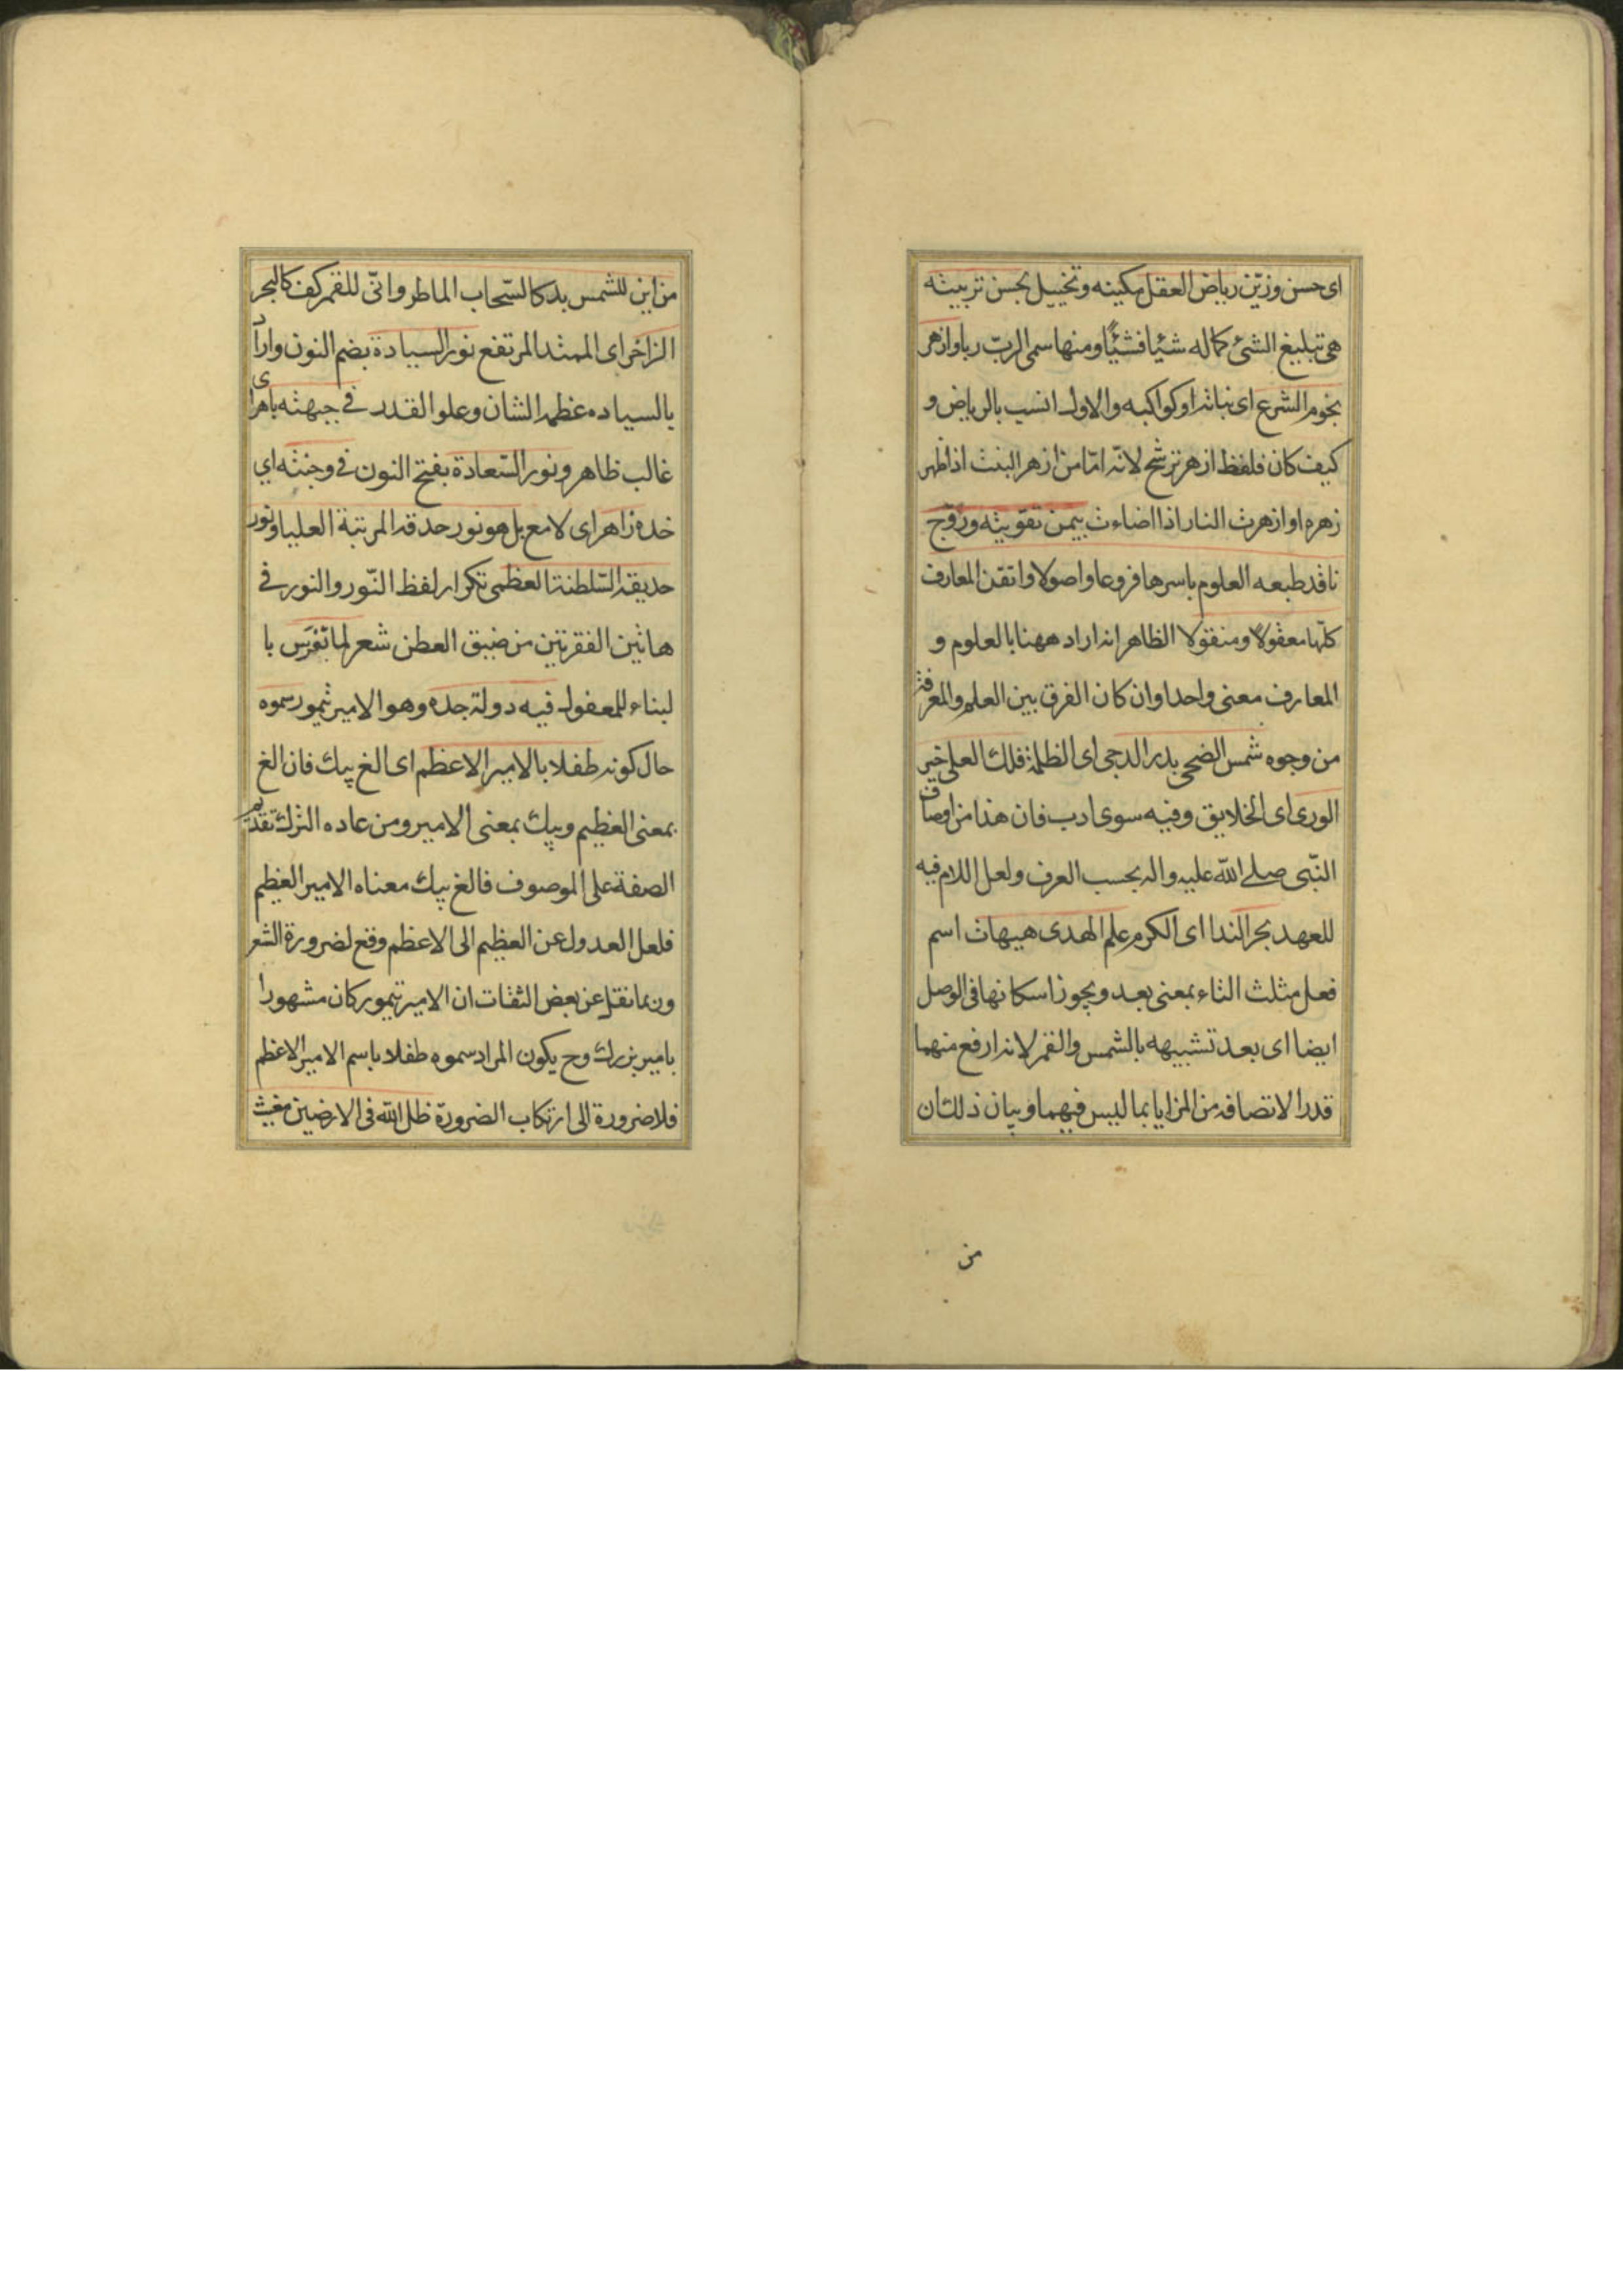 اى حسن وزيّن رياض العقل مكينه وتخييل بحسن تربيته
هى تبليغ الشئ كماله شيئا فشيئا ومنها سمى الرب ربا وازهر
نجوم الشرع اى نباته او كواكبه والاول انسب بالرياض و
كيف كان فلفظ ازهر ترشح لانه امّا من ازهر النبت اذا ظهر
زهره او ازهرت النار اذا اضاءت بيمن تقويته وروّج
ناقد طبعه العلوم باسرها فروعا واصولا واتقن المعارف
كلّها معقولا ومنقولا الظاهر انه اراد ههنا بالعلوم و
المعارف معنى واحدا وان كان الفرق بين العلم والمعرفة
من وجوه شمس الضحى بدر الدجى اى الظلمة فلك العلى خير
الورى اى الخلايق وفيه سوى ادب فان هذا من اوصاف
النّبى صلى الله عليه واله بحسب العرف ولعل اللام فيه
للعهد بحر الندا اى الكرم علم الهدى هيهات اسم
فعل مثلث التاء بمعنى بعد ويجوز اسكانها فى الوصل
ايضا اى بعد تشبيهه بالشمس والقمر لانه ارفع منهما
قدرا لاتصافه من المزايا بما ليس فيهما وبيان ذلك ان
من
من اين للشمس يد كالسّحاب الماطر وانّى للقمر كف كالبحر
الزاخر اى الممتد المرتفع نور السيادة بضم النون واراد
بالسياده عظم الشان وعلو القدر فى جبهته باهر اى
غالب ظاهر ونور السّعادة بفتح النون فى وجنته اي
خده زاهر اى لامع بل هو نور حدقة المرتبة العليا ونور
حديقة السّلطنة العظمى تكرار لفظ النّور والنور فى
هاتين الفقرتين من ضيق العطن شعر لما تُفرّس با
لبناء للمفعول فيه دولة جده وهو الامير تيمور سموه
حال كونه طفلا بالامير الاعظم اى الغ بيك فان الغ
بمعنى العظيم وبيك بمعنى الامير ومن عاده الترك تقديم
الصفة على الموصوف فالغ بيك معناه الامير العظيم
فلعل العدول عن العظيم الى الاعظم وقع لضرورة الشعر
وربما نقل عن بعض الثقات ان الامير تيمور كان مشهورا
بامير بزرك وح يكون المراد سموه طفلا باسم الامير الاعظم
فلا ضرورة الى ارتكاب الضرورة ظل الله فى الارضين مغيث